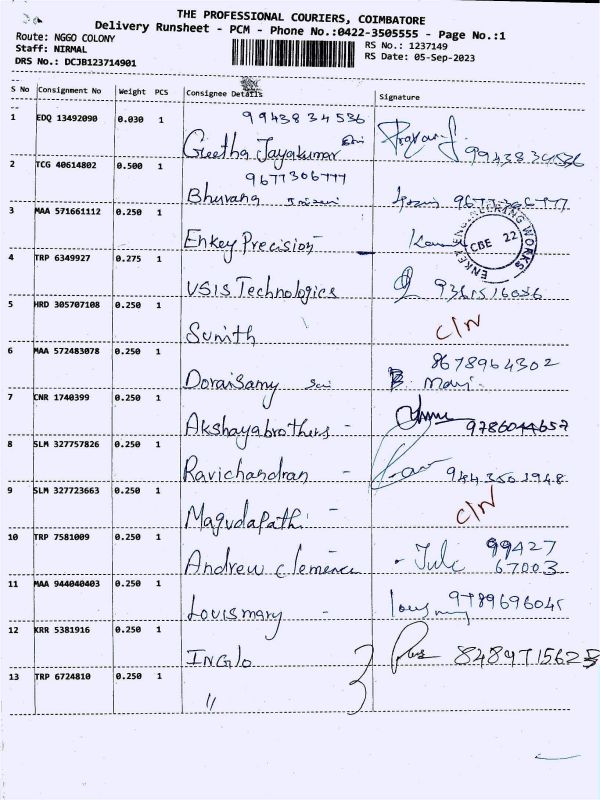 THE PROFESSIONAL COURIERS, COIMBATORE
Delivery Runsheet - PCM - Phone No.:0422-3505555 - Page No.:1
Route: NGGO COLONY
Staff: NIRMAL
DRS No.: DCJB123714901
RS No.: 1237149
RS Date: 05-Sep-2023
S No Consignment No Weight PCS Consignee Details Signature
1 EDQ 13492090 0.030 1 9943834536
Geetha Jayakumar 9943834536
2 TCG 40614802 0.500 1 9677306777
Bhuvana 9677306777
3 MAA 571661112 0.250 1
Enkey Precision
ENKEY ENGINEERING WORKS CBE 22
4 TRP 6349927 0.275 1
VSIS Technologies
5 HRD 305707108 0.250 1
Sunith C/N
6 MAA 572483078 0.250 1 8678964302
Doraisamy
7 CNR 1740399 0.250 1
Akshayabrothers - 9786044657
8 SLM 327757826 0.250 1
Ravichandran -
9 SLM 327723663 0.250 1
Magudapathi - C/N
10 TRP 7581009 0.250 1 99427
Andrew Clemence - Juli 67003
11 MAA 944040403 0.250 1
Louismary - 9789696045
12 KRR 5381916 0.250 1
INGlo
13 TRP 6724810 0.250 1
"